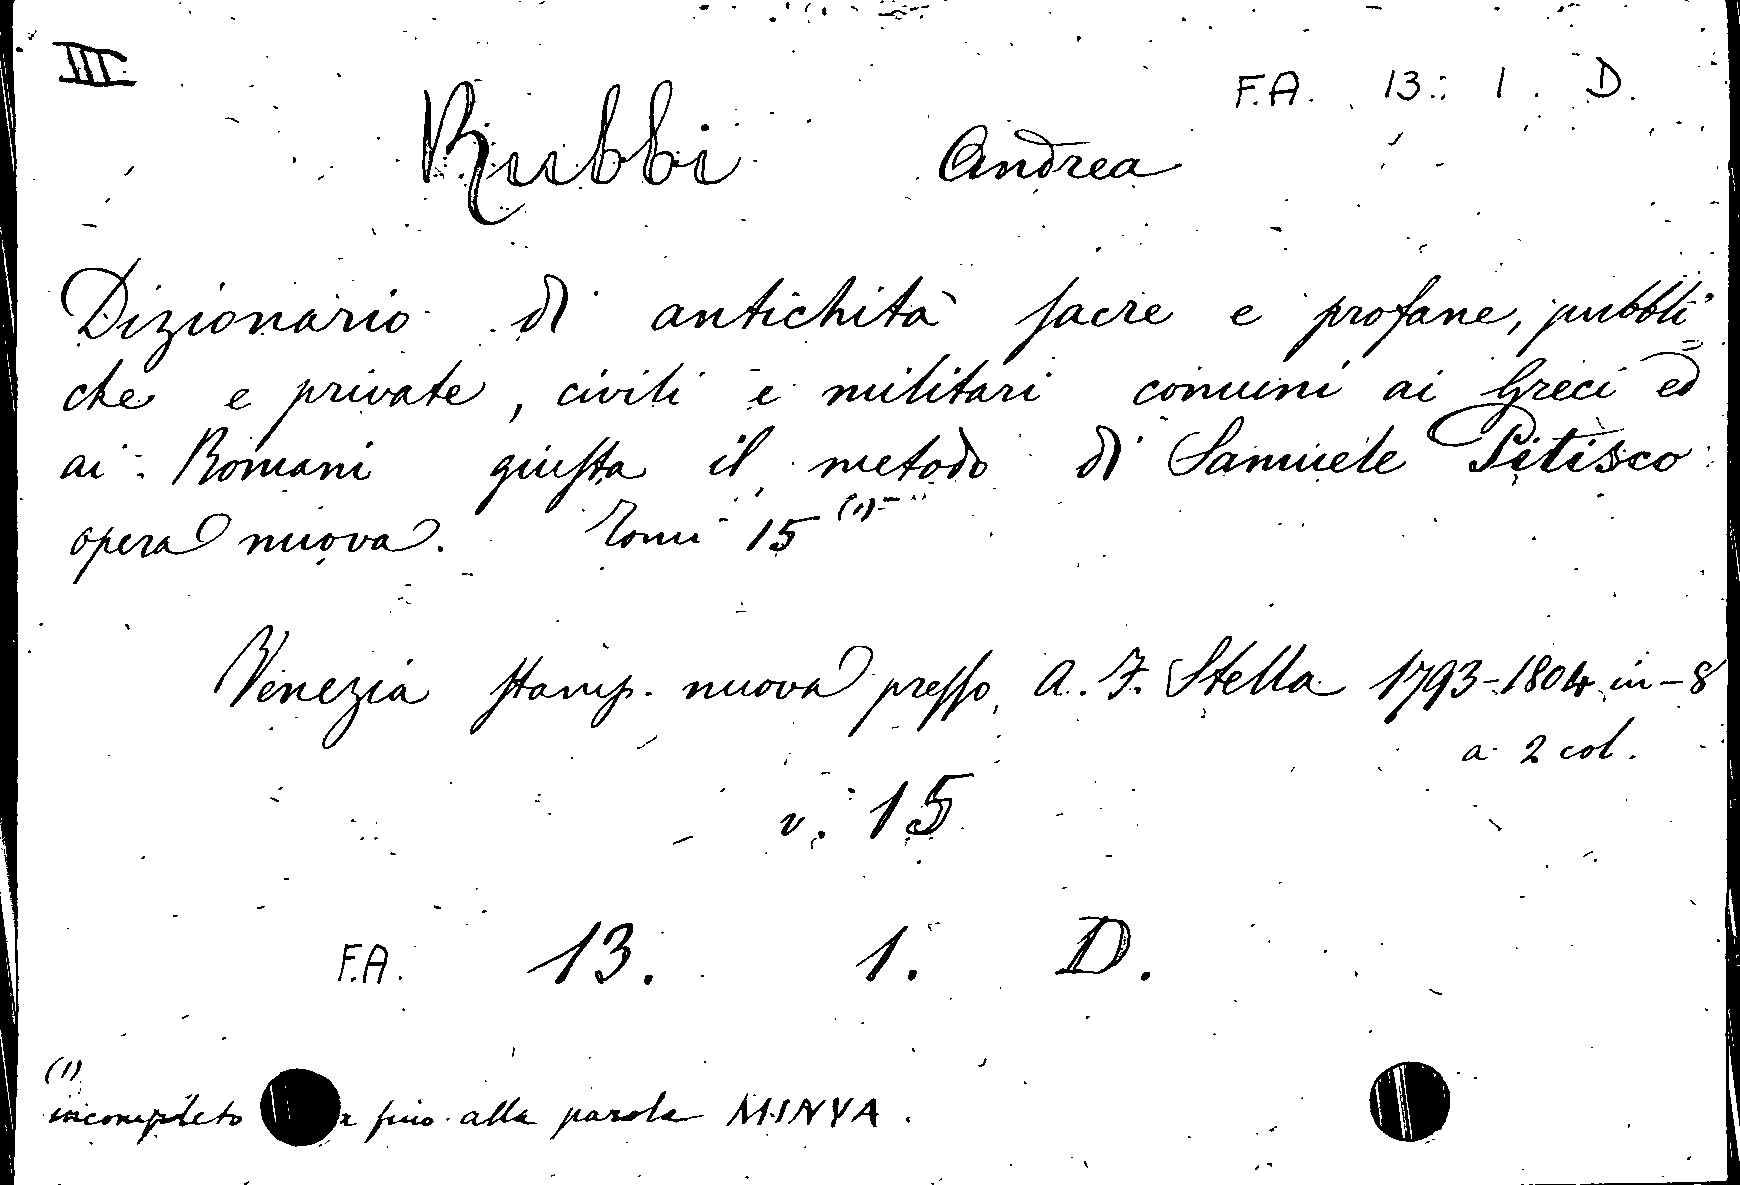 III.
F.A. 13. 1. D.
Rubbi Andrea
Dizionario di antichità sacre e profane, pubbli
che e private, civili e militari comuni ai Greci ed
ai Romani giusta il metodo di Samuele Pitisco
opera nuova. Tomi 15 (1)
Venezia stamp. nuova presso A. F. Stella 1793-1804 in-8
a 2 col.
v. 15
F.A. 13. 1. D.
(1)
incompleto fino alla parola MINYA.